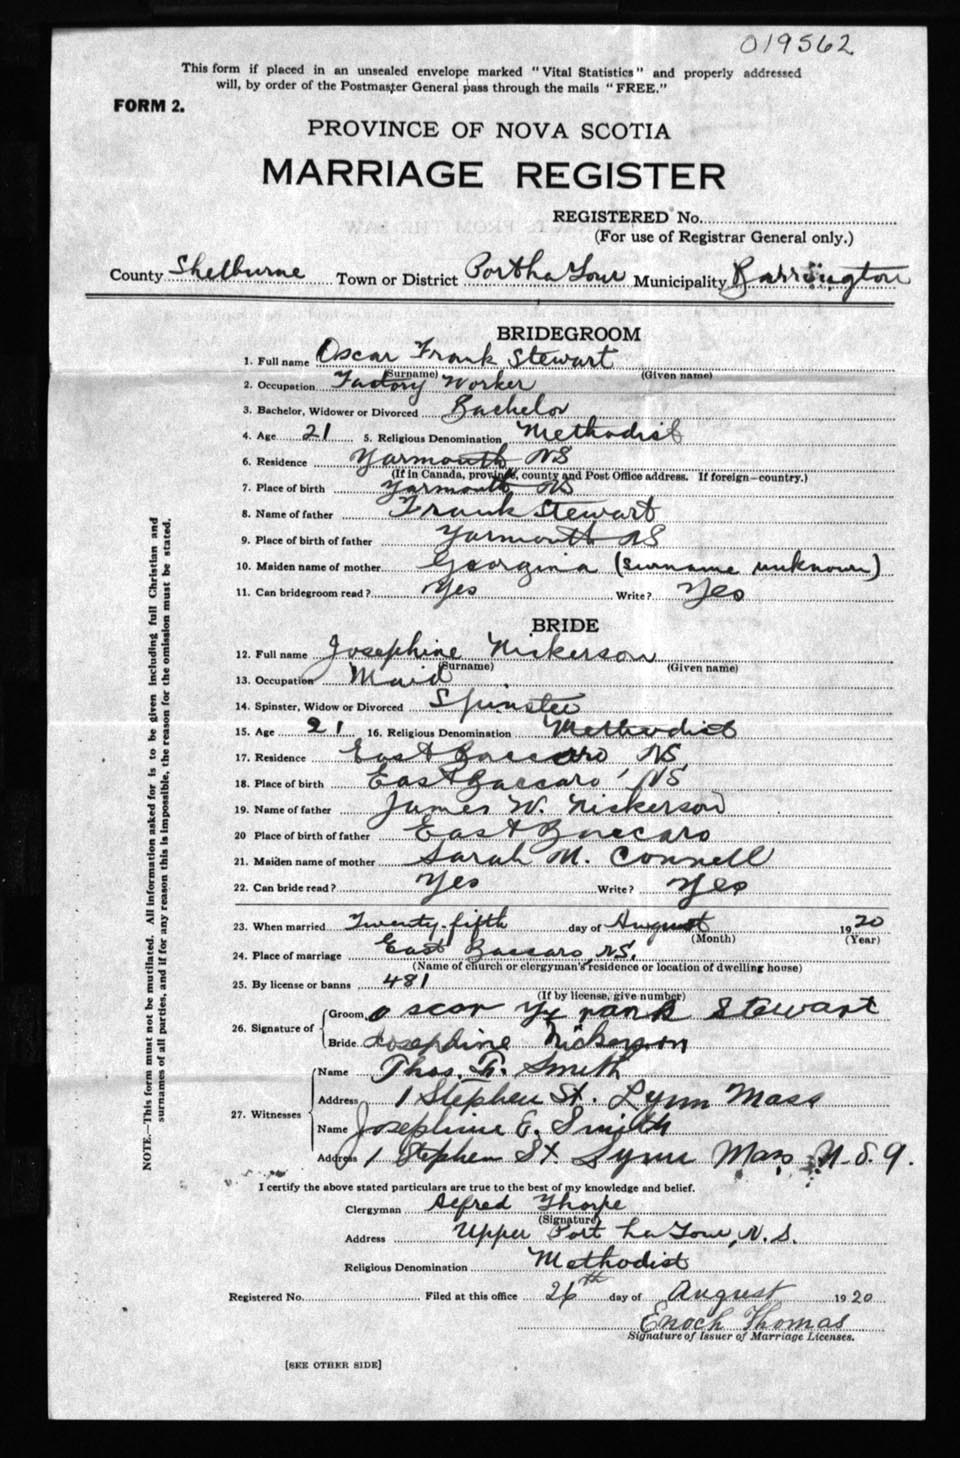 019562
This form if placed in an unsealed envelope marked "Vital Statistics" and properly addressed
will, by order of the Postmaster General pass through the mails "FREE."
FORM 2.
PROVINCE OF NOVA SCOTIA
MARRIAGE REGISTER
REGISTERED No.
(For use of Registrar General only.)
County Shelburne Town or District Port La Tour Municipality Barrington
BRIDEGROOM
1. Full name Oscar Frank Stewart
(Surname) (Given name)
2. Occupation Factory Worker
3. Bachelor, Widower or Divorced Bachelor
4. Age 21 5. Religious Denomination Methodist
6. Residence Yarmouth NS
(If in Canada, province, county and Post Office address. If foreign—country.)
7. Place of birth Yarmouth NS
8. Name of father Frank Stewart
9. Place of birth of father Yarmouth NS
10. Maiden name of mother Georgina (surname unknown)
11. Can bridegroom read? Yes Write? Yes
BRIDE
12. Full name Josephine Nickerson
(Surname) (Given name)
13. Occupation Maid
14. Spinster, Widow or Divorced Spinster
15. Age 21 16. Religious Denomination Methodist
17. Residence East Baccaro NS
18. Place of birth East Baccaro, NS
19. Name of father James W. Nickerson
20 Place of birth of father East Baccaro
21. Maiden name of mother Sarah M. Connell
22. Can bride read? Yes Write? Yes
23. When married Twenty-fifth day of August 1920
(Month) (Year)
24. Place of marriage East Baccaro, NS.
(Name of church or clergyman's residence or location of dwelling house)
25. By license or banns 481
(If by license, give number)
26. Signature of Groom Oscar Frank Stewart
Bride Josephine Nickerson
27. Witnesses Name Thos. F. Smith
Address 1 Stephen St. Lynn Mass
Name Josephine E. Smith
Address 1 Stephen St. Lynn Mass U.S.A.
I certify the above stated particulars are true to the best of my knowledge and belief.
Clergyman Alfred Thorpe
(Signature)
Address Upper Port La Tour, N.S.
Religious Denomination Methodist
Registered No. Filed at this office 26th day of August 1920
Enoch Thomas
Signature of Issuer of Marriage Licenses.
[SEE OTHER SIDE]
NOTE.—This form must not be mutilated. All information asked for is to be given including full Christian and
surnames of all parties, and if for any reason this is impossible, the reason for the omission must be stated.